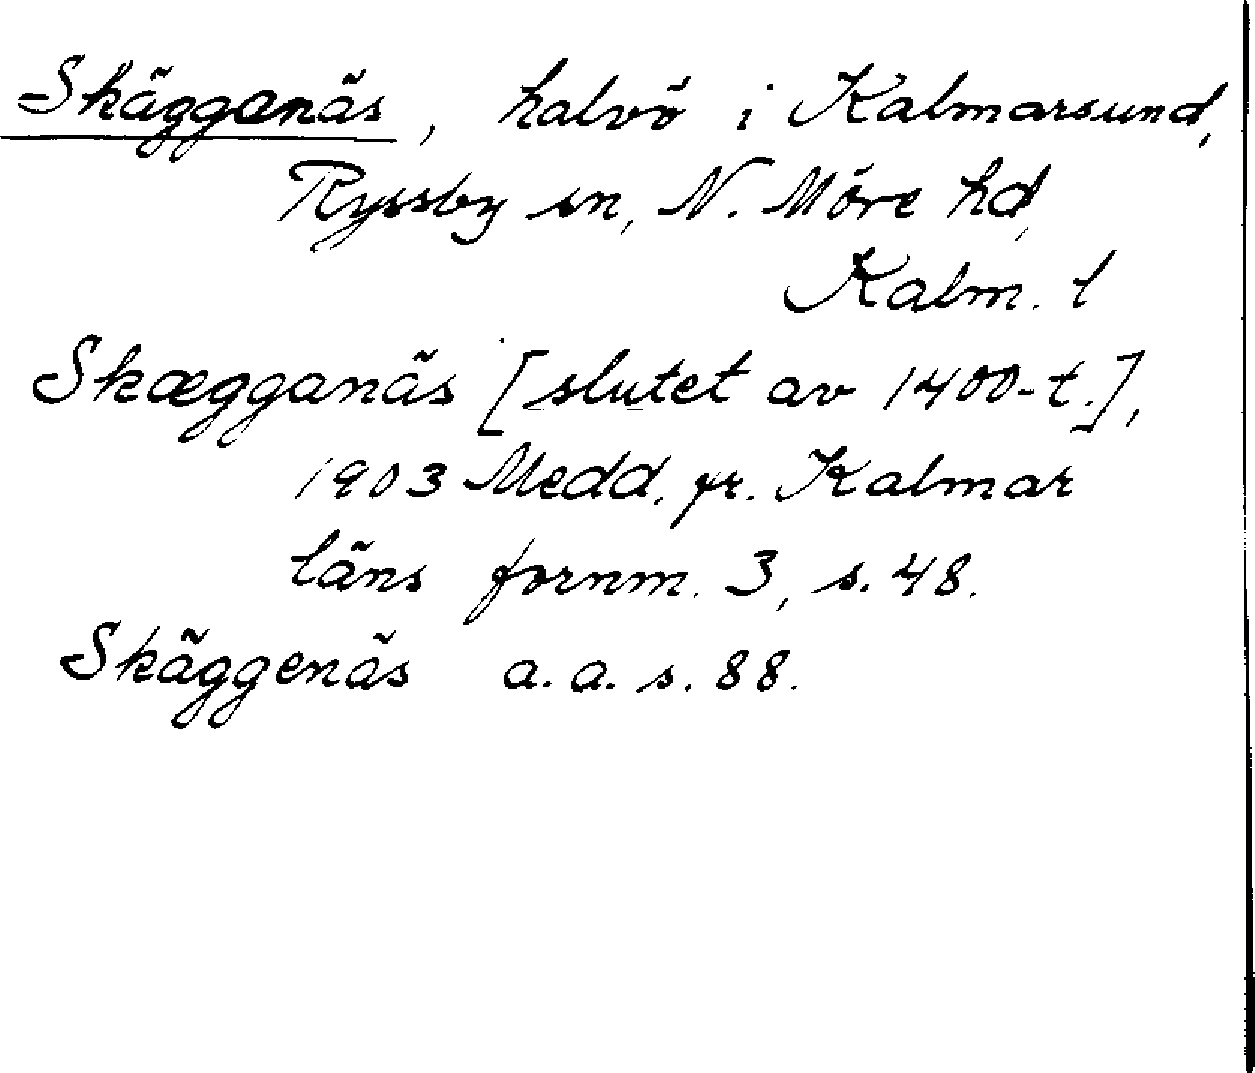 Skägganäs, halvö i Kalmarsund,
Ryssby sn, N. Möre hd,
Kalm. l
Skægganäs [slutet av 1400-t.],
1903 Medd. fr. Kalmar
läns fornm. 3, s. 48.
Skäggenäs a. a. s. 88.